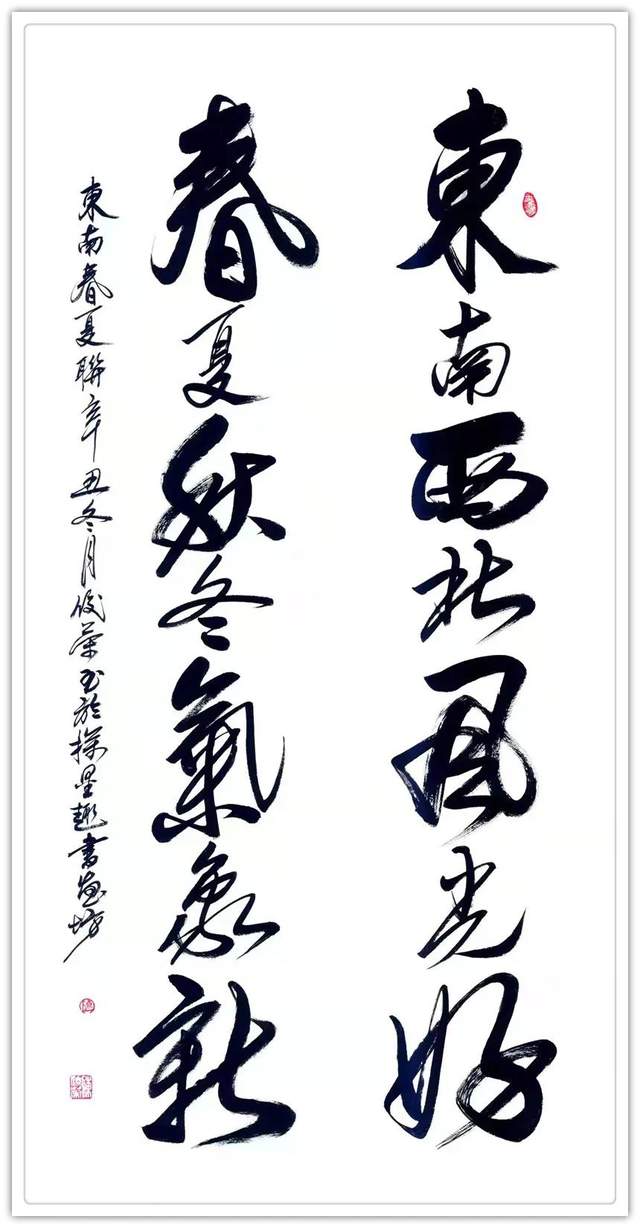 東南西北風光好
春夏秋冬氣象新
東南春夏聯辛丑冬月俊榮書於探星趣書畫坊